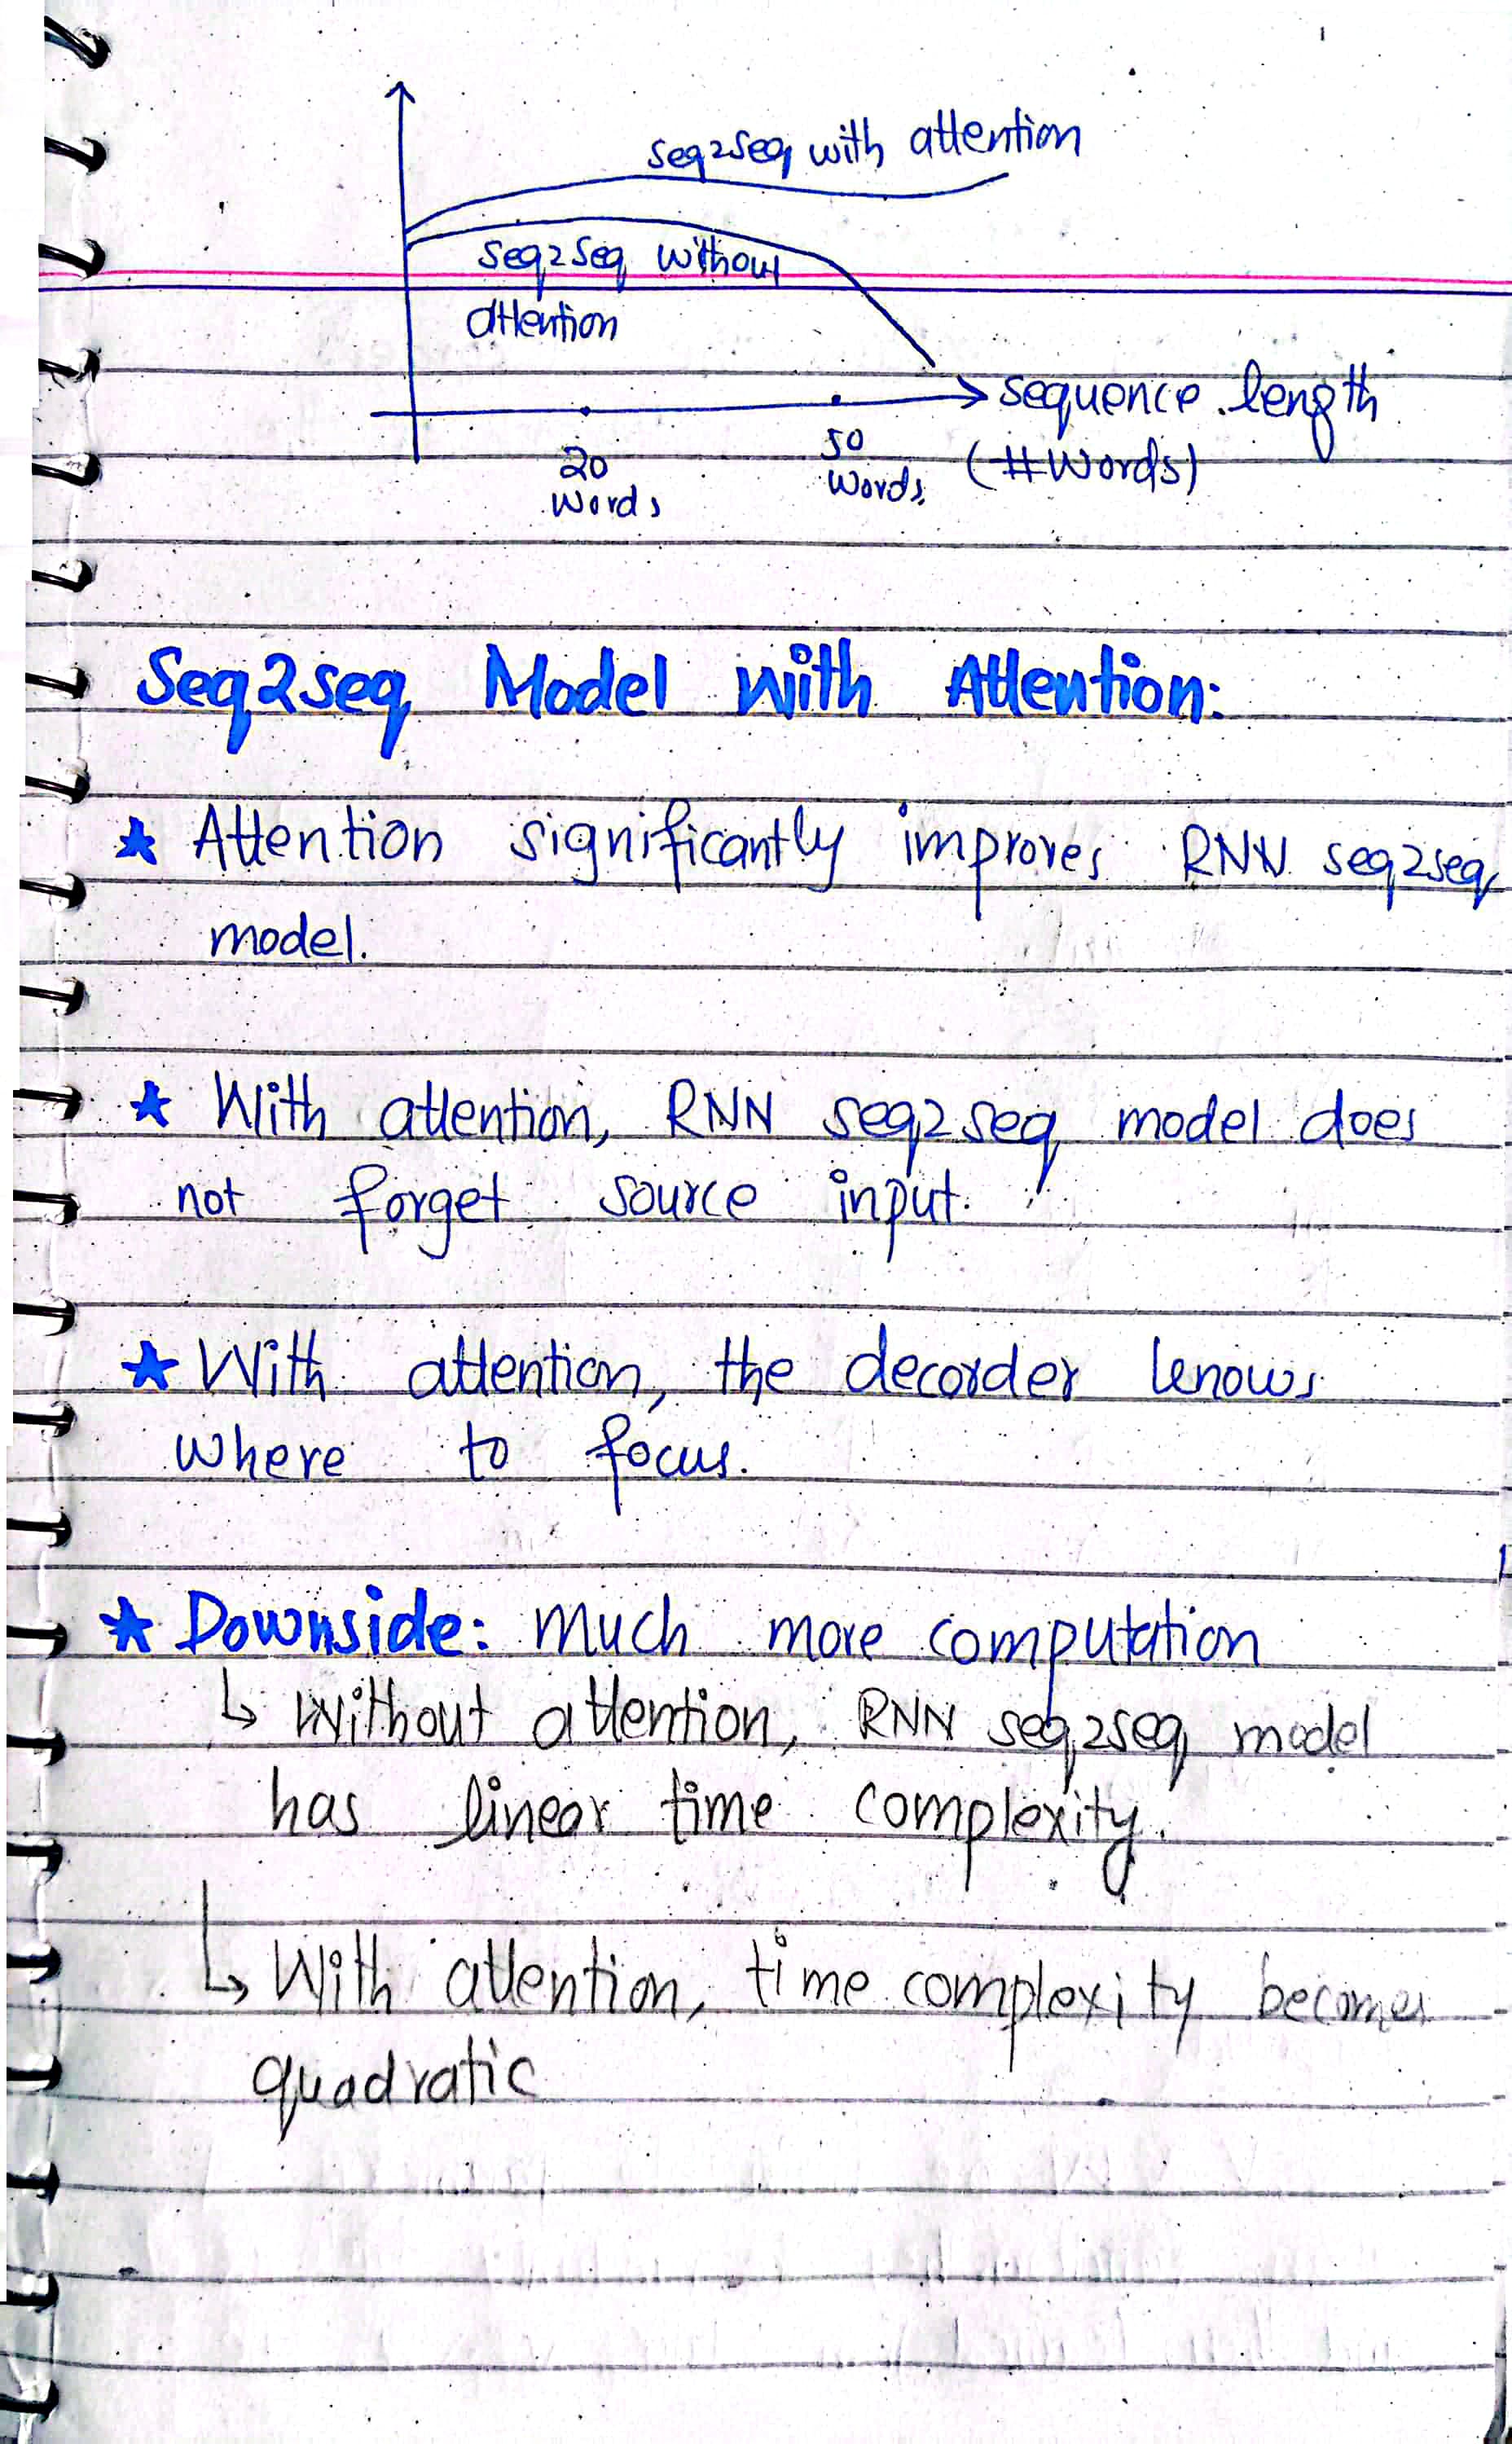 seq2seq with attention
seq2seq without
attention
sequence length
20
words
50
words
(#words)
Seq2seq Model with Attention:
★ Attention significantly improves RNN seq2seq
model.
★ With attention, RNN seq2seq model does
not forget source input.
★ With attention, the decorder knows
where to focus.
★ Downside: much more computation
↳ Without attention, RNN seq2seq model
has linear time complexity.
↳ With attention, time complexity becomes
quadratic